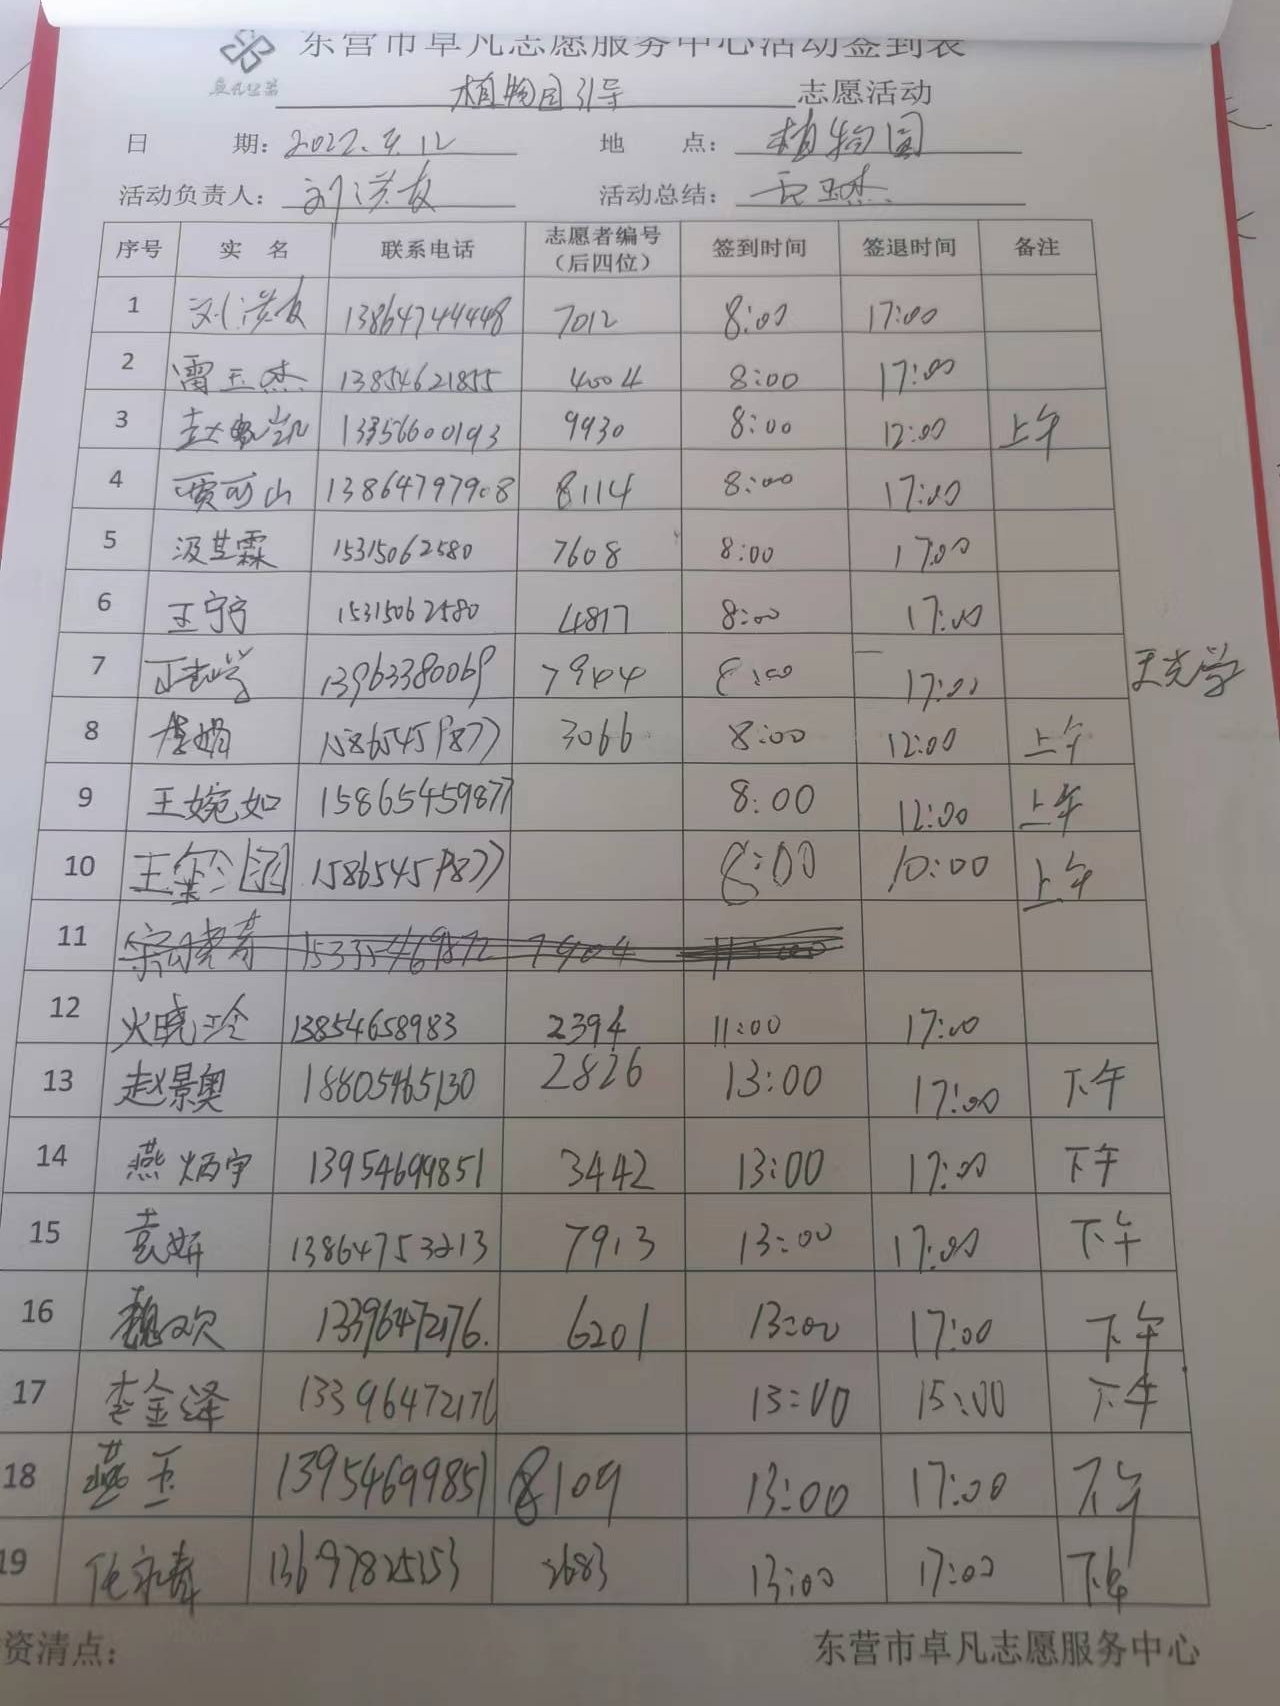 东营市卓凡志愿服务中心活动签到表
卓凡公益
植物园引导 志愿活动
日 期: 2022.5.12 地 点: 植物园
活动负责人: 刘洪友 活动总结: 雷玉杰
序号 实 名 联系电话 志愿者编号（后四位） 签到时间 签退时间 备注
1 刘洪友 13864744448 7012 8:00 17:00
2 雷玉杰 13854621855 4004 8:00 17:00
3 13356600193 9930 8:00 12:00 上午
4 贾可山 13864797908 8114 8:00 17:00
5 汲芸霖 15315062580 7608 8:00 17:00
6 王宁宁 15315062580 4817 8:00 17:00
7 13963380069 7904 8:00 17:00 王志学
8 李娟 15865459877 3066 8:00 12:00 上午
9 王婉如 15865459877 8:00 12:00 上午
10 王 涵 15865459877 8:00 10:00 上午
11 7904
12 火晓玲 13854658983 2394 11:00 17:00
13 赵景奥 18805465130 2826 13:00 17:00 下午
14 燕炳宇 13954699851 3442 13:00 17:00 下午
15 袁妍 13864753213 7913 13:00 17:00 下午
16 魏欢 13396472176. 6201 13:00 17:00 下午
17 李金泽 13396472176 13:00 15:00 下午
18 燕玉 13954699851 8109 13:00 17:00 下午
19 任永春 13697825353 2683 13:00 17:00 下午
资清点: 东营市卓凡志愿服务中心